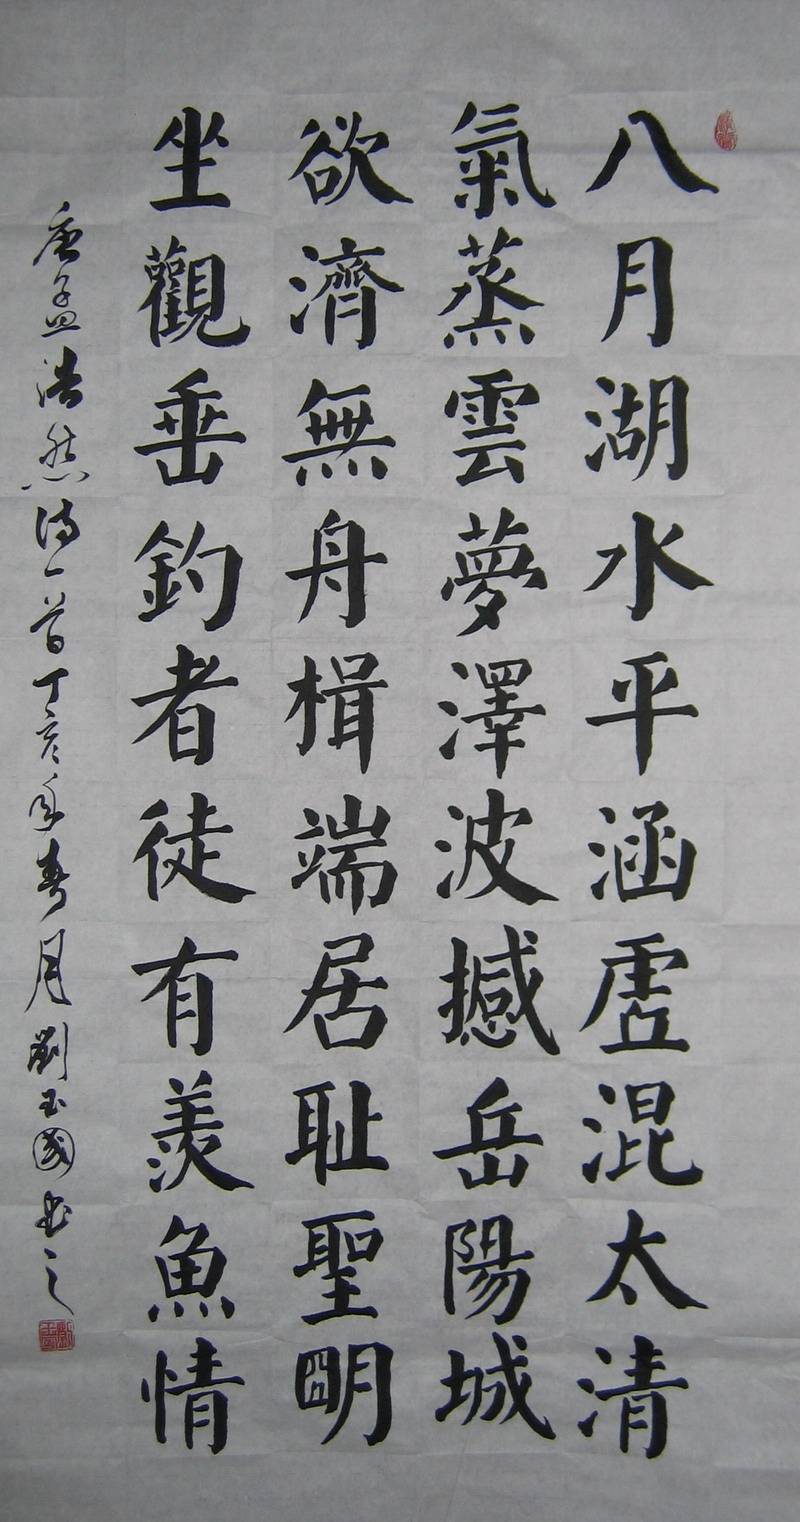 八月湖水平涵虛混太清
氣蒸雲夢澤波撼岳陽城
欲濟無舟楫端居耻聖明
坐觀垂釣者徒有羨魚情
唐孟浩然诗一首丁亥年春月劉玉國书之